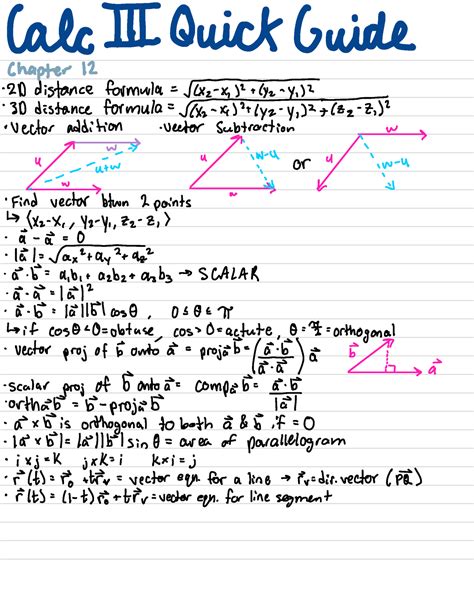 Calc III Quick Guide
Chapter 12
·2D distance formula = √(x₂-x₁)²+(y₂-y₁)²
·3D distance formula = √(x₂-x₁)²+(y₂-y₁)²+(z₂-z₁)²
·Vector addition ·vector Subtraction
u w u+w w
u w-u w
or
u w w-u
·Find vector btwn 2 points
↳ ⟨x₂-x₁, y₂-y₁, z₂-z₁⟩
·a⃗ - a⃗ = 0
·|a⃗| = √aₓ²+aᵧ²+a_z²
·a⃗·b⃗ = a₁b₁+a₂b₂+a₃b₃ → SCALAR
·a⃗·a⃗ = |a⃗|²
·a⃗·b⃗ = |a⃗||b⃗|cosθ, 0≤θ≤π
↳if cosθ<0=obtuse, cos>0=actute, θ=π/2=orthogonal
·vector proj of b⃗ onto a⃗ = proja⃗b⃗ = (a⃗·b⃗/a⃗·a⃗)a⃗
b⃗ a⃗
·scalar proj of b⃗ onto a⃗ = compa⃗b⃗ = a⃗·b⃗/|a⃗|
·ortha⃗b⃗ = b⃗-proja⃗b⃗
·a⃗×b⃗ is orthogonal to both a⃗ & b⃗ if = 0
·|a⃗×b⃗|=|a⃗||b⃗|sinθ = area of parallelogram
·i×j=k j×k=i k×i=j
·r⃗(t) = r⃗₀+tr⃗ᵥ = vector eqn. for a line → r⃗ᵥ=dir. vector (PQ⃗)
·r⃗(t) = (1-t)r⃗₀+tr⃗ᵥ=vector eqn. for line segment